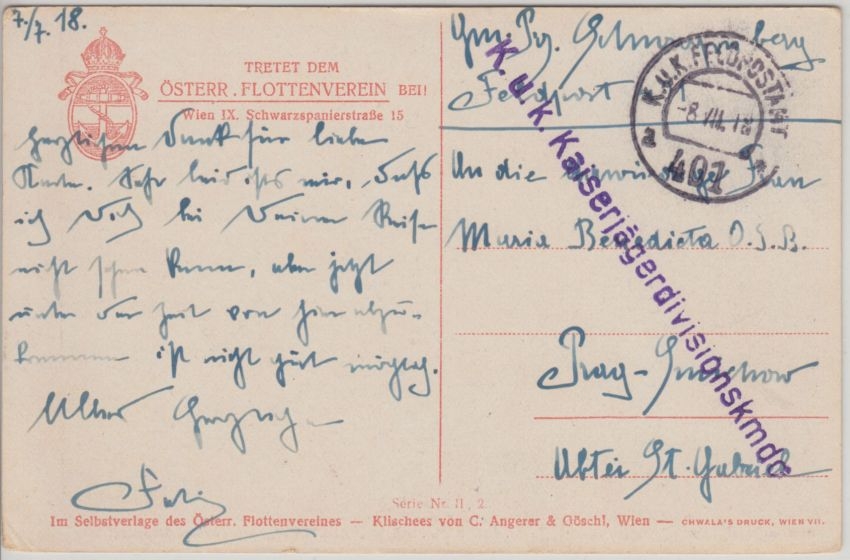 7./7. 18.
TRETET DEM
ÖSTERR. FLOTTENVEREIN BEI!
Wien IX. Schwarzspanierstraße 15
Herzlichen Dank für liebe
Karte. Sehr leid ist's mir, daß
ich Dich bei Deiner Reise
nicht sehen kann, aber jetzt
unter der Zeit von hier abzu-
kommen ist nicht gut möglich.
Alles
Feldpost
K.U.K. FELDPOSTAMT
-8.VII.18
401
K. u. k. Kaiserjägerdivisionskmdo
An die Frau
Maria Benedicta O.S.B.
Prag-Smichow
Abtei St. Gabriel
Serie Nr. II, 2.
Im Selbstverlage des Österr. Flottenvereines — Klischees von C. Angerer & Göschl, Wien — CHWALA'S DRUCK, WIEN VII.